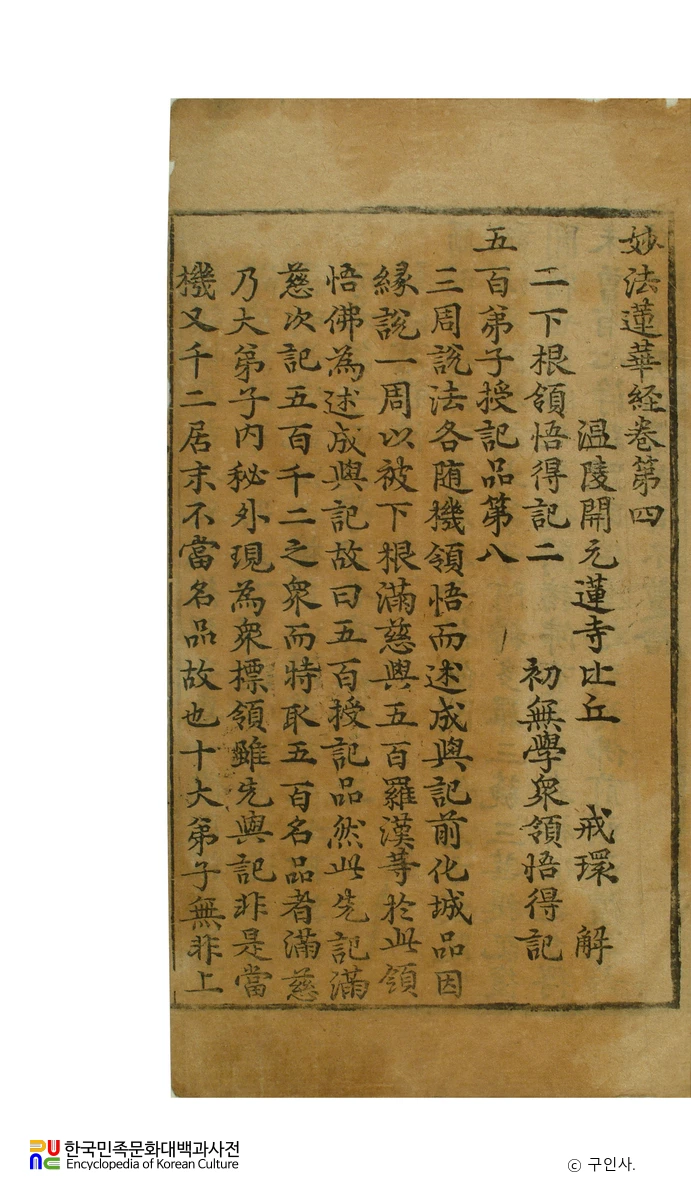 妙法蓮華経卷第四
溫陵開元蓮寺比丘 戒環 解
二下根領悟得記二 初無學衆領悟得記
五百弟子授記品第八
三周說法各随機領悟而述成與記前化城品因
緣說一周以被下根滿慈與五百羅漢等於此領
悟佛為述成與記故曰五百授記品然此先記滿
慈次記五百千二之衆而特取五百名品者滿慈
乃大弟子内秘外現為衆標領雖先與記非是當
機又千二居末不當名品故也十大弟子無非上
한국민족문화대백과사전
Encyclopedia of Korean Culture
© 구인사.